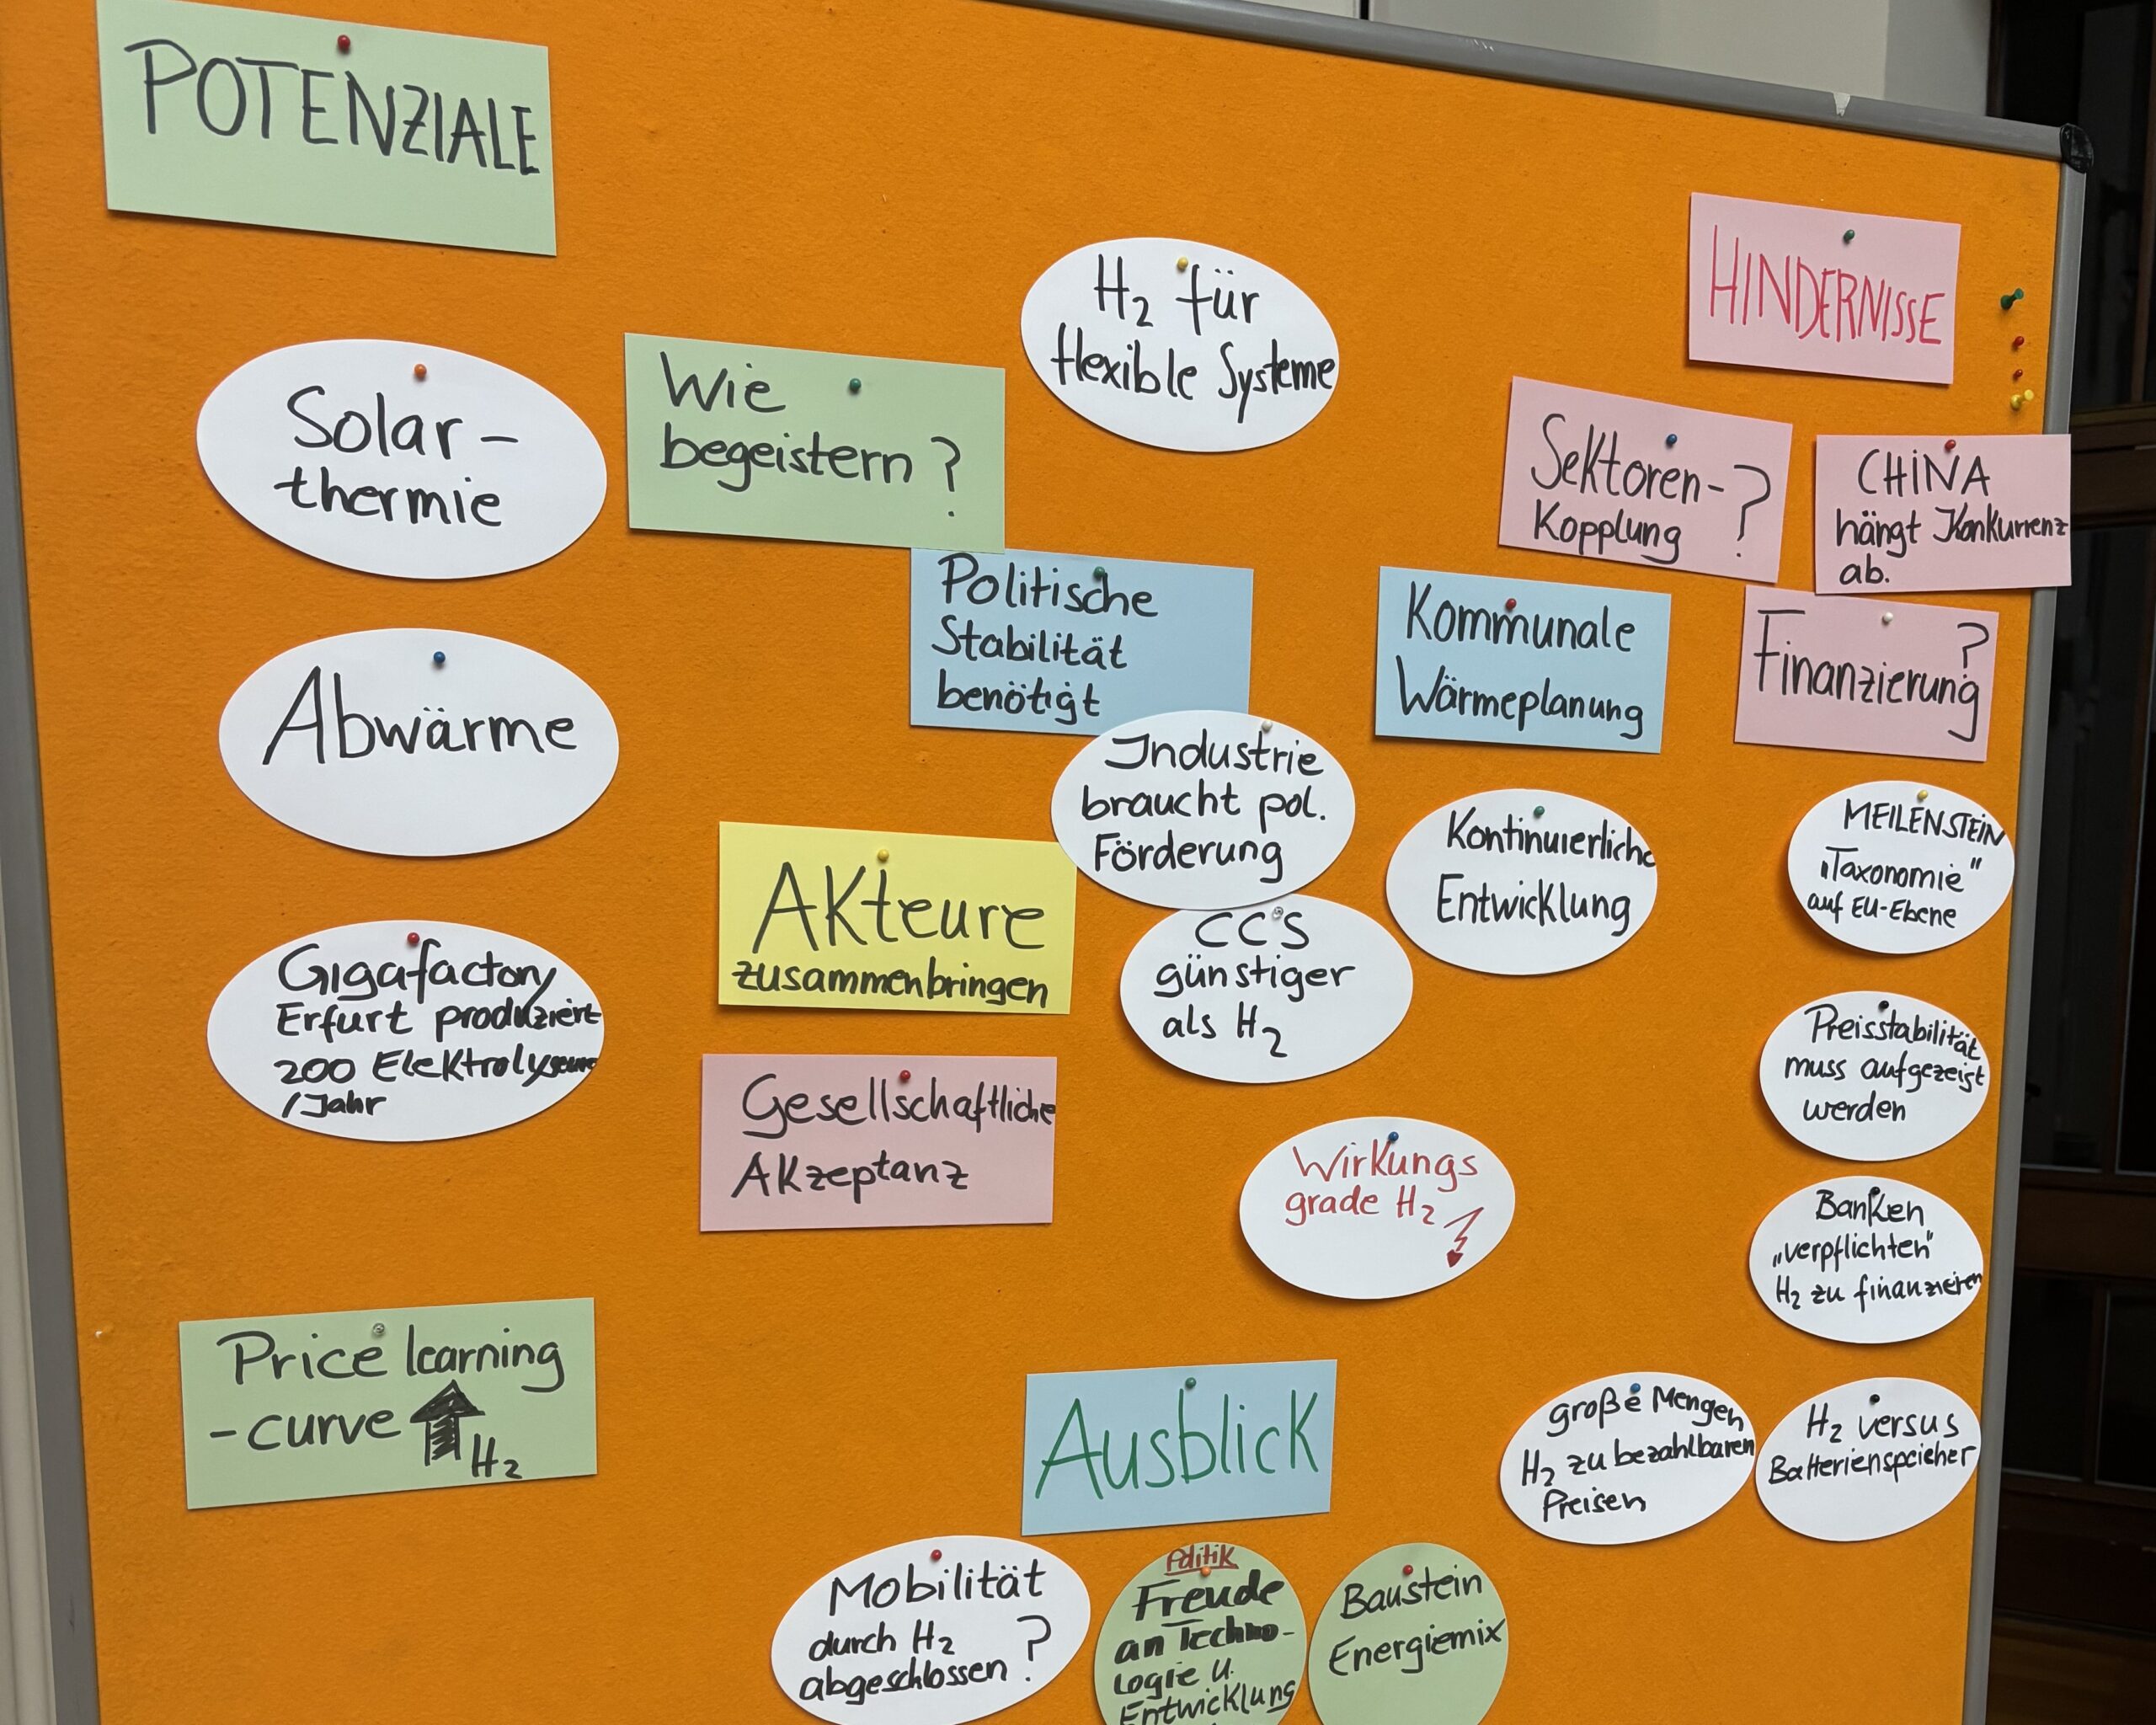 POTENZIALE
Solar-
thermie
Abwärme
Gigafactory
Erfurt produziert
200 Elektrolyseure
/Jahr
Price learning
-curve H₂
Wie
begeistern?
H₂ für
flexible Systeme
Politische
Stabilität
benötigt
Industrie
braucht pol.
Förderung
Akteure
zusammenbringen
CCS
günstiger
als H₂
Gesellschaftliche
Akzeptanz
Wirkungs
grade H₂
HINDERNISSE
Sektoren-
Kopplung ?
CHINA
hängt Konkurrenz
ab.
Kommunale
Wärmeplanung
Finanzierung ?
Kontinuierliche
Entwicklung
MEILENSTEIN
„Taxonomie"
auf EU-Ebene
Preisstabilität
muss aufgezeigt
werden
Banken
„verpflichten"
H₂ zu finanzieren
große Mengen
H₂ zu bezahlbaren
Preisen
H₂ versus
Batterienspeicher
Ausblick
Mobilität
durch H₂
abgeschlossen ?
Politik
Freude
an Techno-
logie u.
Entwicklung
Baustein
Energiemix